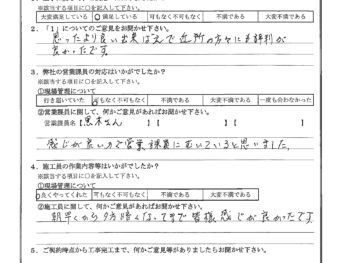 ※該当する項目に○を記入して下さい。
大変満足している ○満足している 可もなく不可もなく 不満である 大変不満である
2．「1」についてのご意見をお聞かせ下さい。
思ったより良い出来ばえで近所の方々にも評判が
良かったです。
3．弊社の営業課員の対応はいかがでしたか？
※該当する項目に○を記入して下さい。
①現場管理について
行き届いていた 可もなく不可もなく 不満である 大変不満である 一度も会わなかった
②営業課員に対して、何かご意見があればお聞かせ下さい。
営業課員名【黒木さん 】【 】【 】
感じが良い方で営業課員にむいていると思いました。
4．施工員の作業内容等はいかがでしたか？
※該当する項目に○を記入して下さい。
①現場管理について
良くやってくれた 可もなく不可もなく 不満である 大変不満である
②施工員に対して、何かご意見があればお聞かせ下さい。
朝早くから夕方暗くなってまで皆様感じが良かったです
5．ご契約時点から工事完了まで、何かご意見等がありましたらお聞かせ下さい。